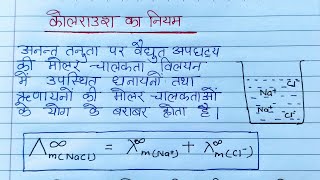 कोलराउश का नियम
अनन्त तनुता पर वैद्युत अपघट्य
की मोलर चालकता विलयन
में उपस्थित धनायनों तथा
ऋणायनों की मोलर चालकताओं
के योग के बराबर होता है।
Λ∞m(NaCl) = λ∞m(Na+) + λ∞m(Cl-)
Cl-
Na+
Na+
Cl-